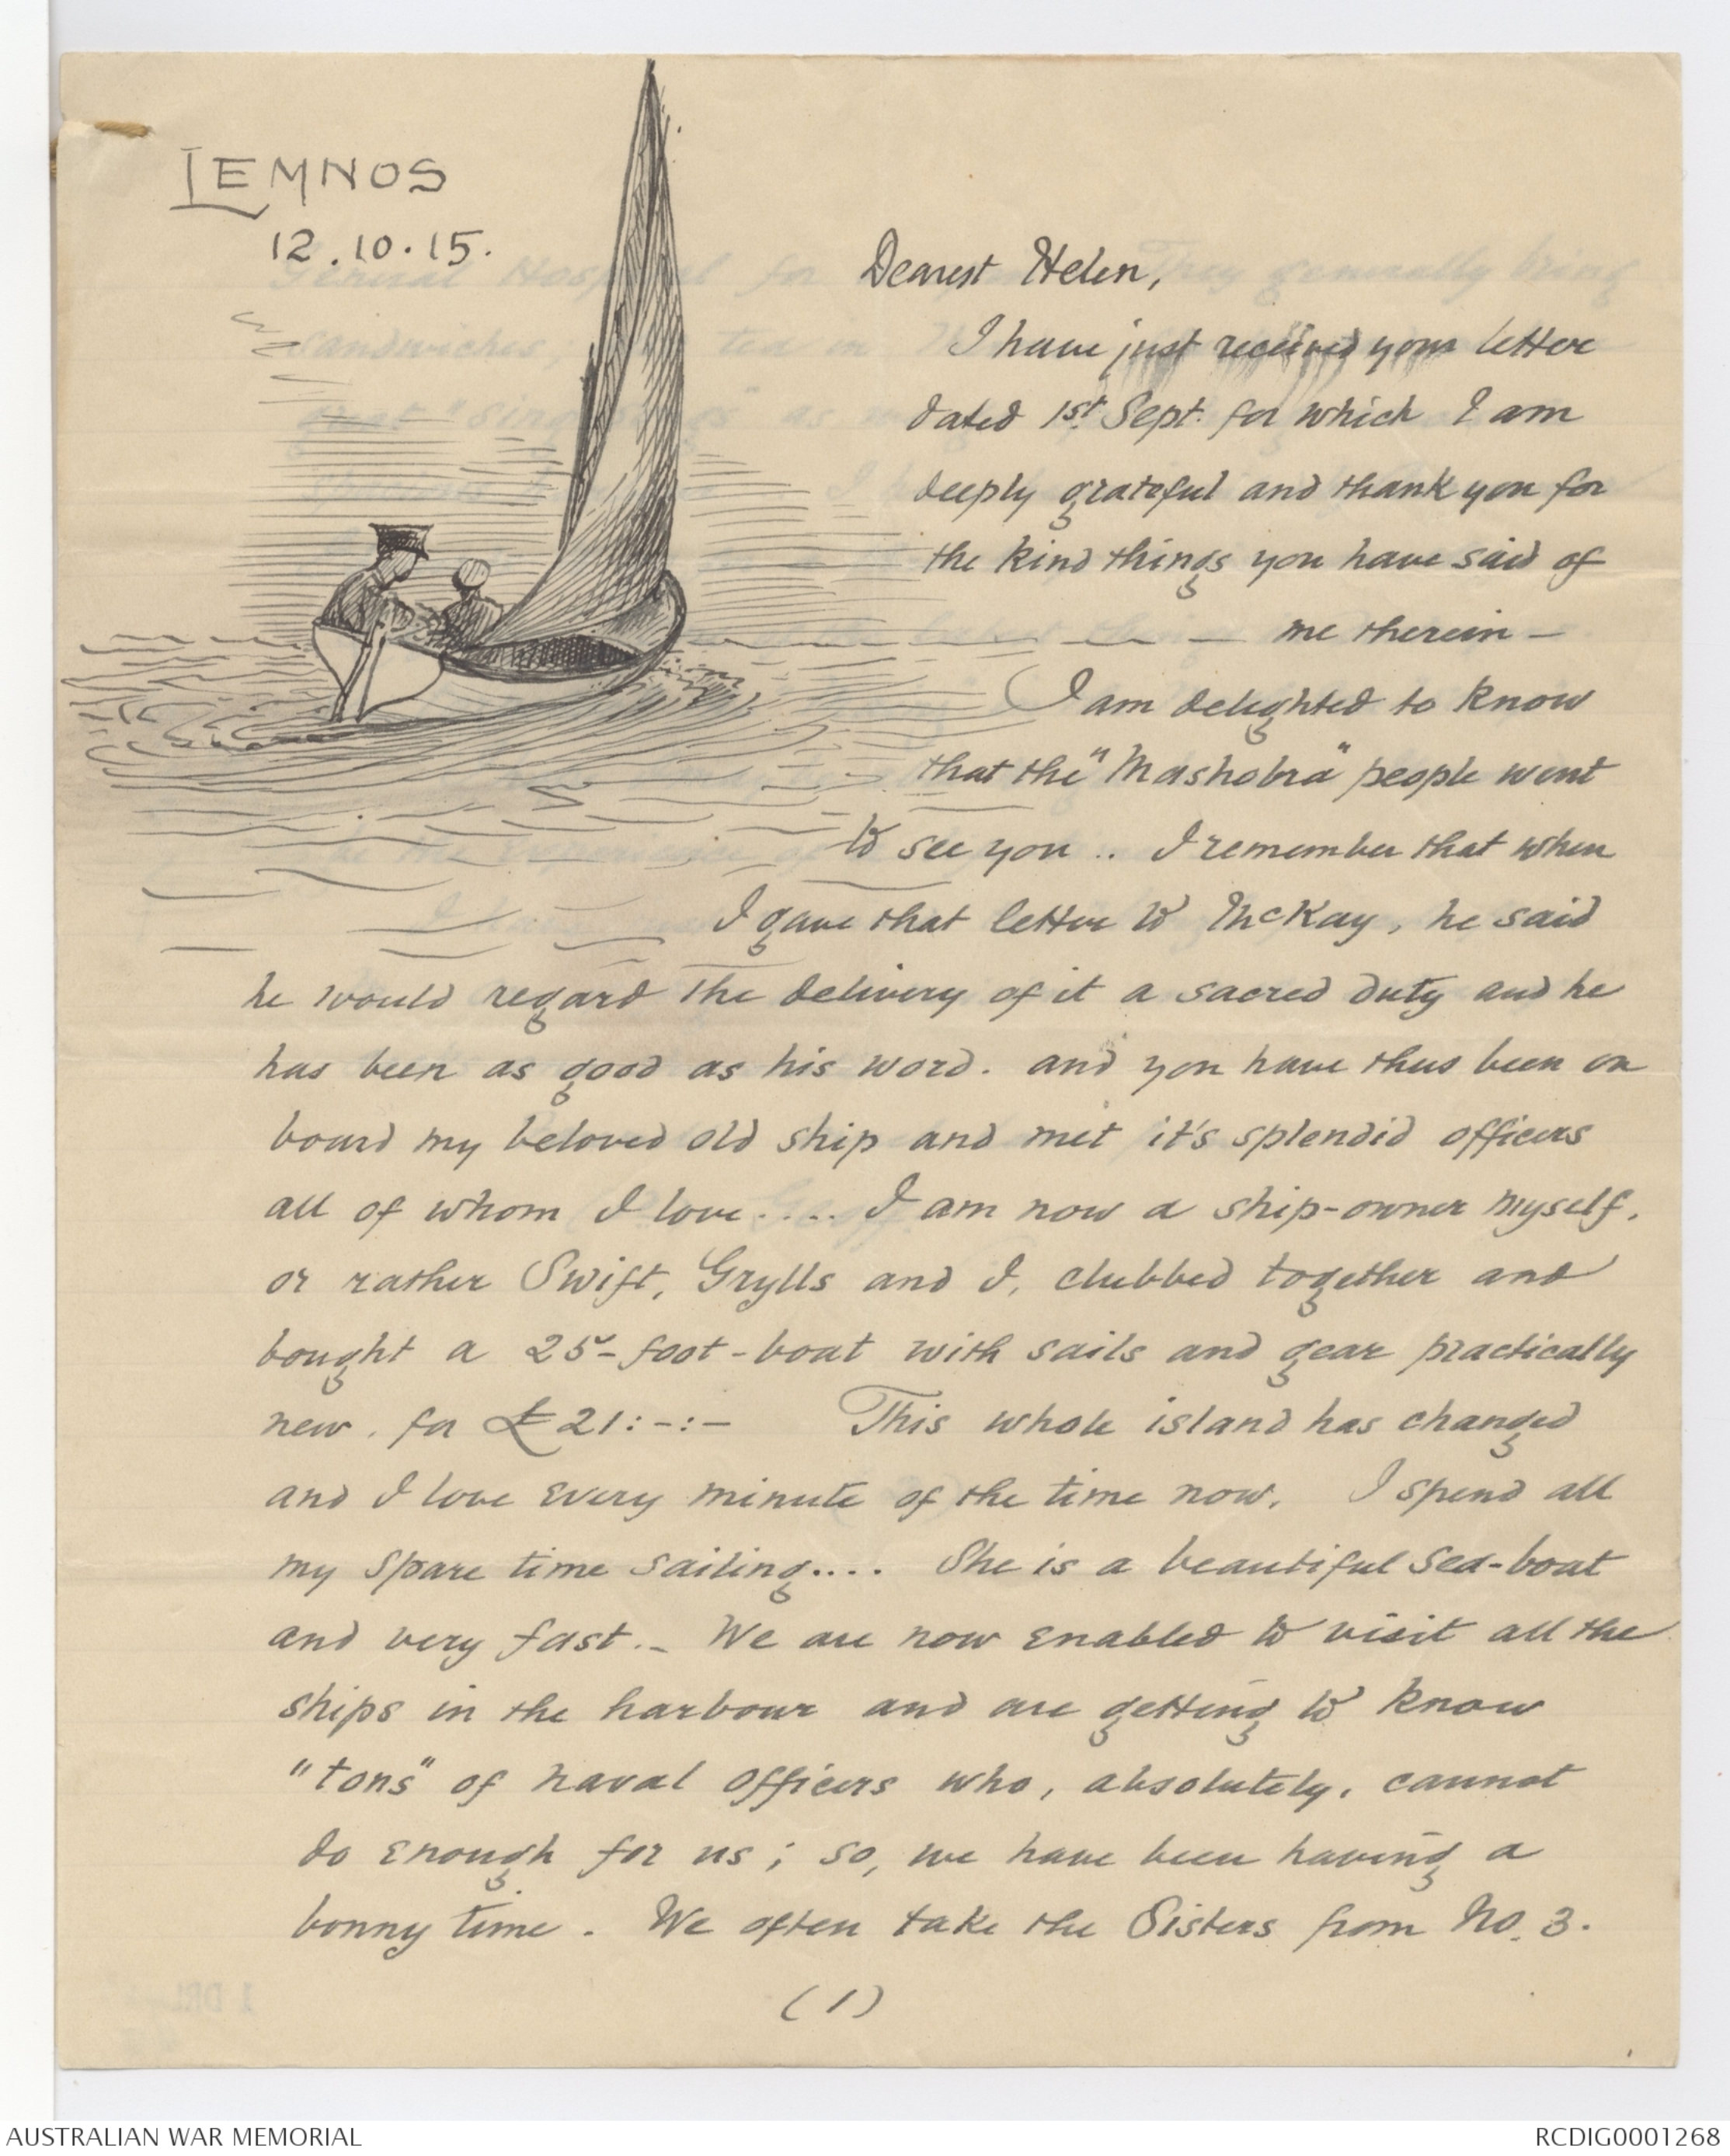 LEMNOS
12.10.15.
Dearest Helen,
I have just received your letter
dated 1st Sept. for which I am
deeply grateful and thank you for
the kind things you have said of
me therein —
I am delighted to know
that the "Mashobra" people went
to see you .. I remember that when
I gave that letter to McKay, he said
he would regard the delivery of it a sacred duty and he
has been as good as his word. and you have thus been on
board my beloved old ship and met it's splendid officers
all of whom I love .... I am now a ship-owner myself,
or rather Swift, Grylls and I, clubbed together and
bought a 25-foot-boat with sails and gear practically
new, for £21:-:- This whole island has changed
and I love every minute of the time now. I spend all
my spare time sailing.... She is a beautiful sea-boat
and very fast.- We are now enabled to visit all the
ships in the harbour and are getting to know
"tons" of naval officers who, absolutely, cannot
do enough for us; so, we have been having a
bonny time. We often take the Sisters from No. 3.
(1)
AUSTRALIAN WAR MEMORIAL
RCDIG0001268